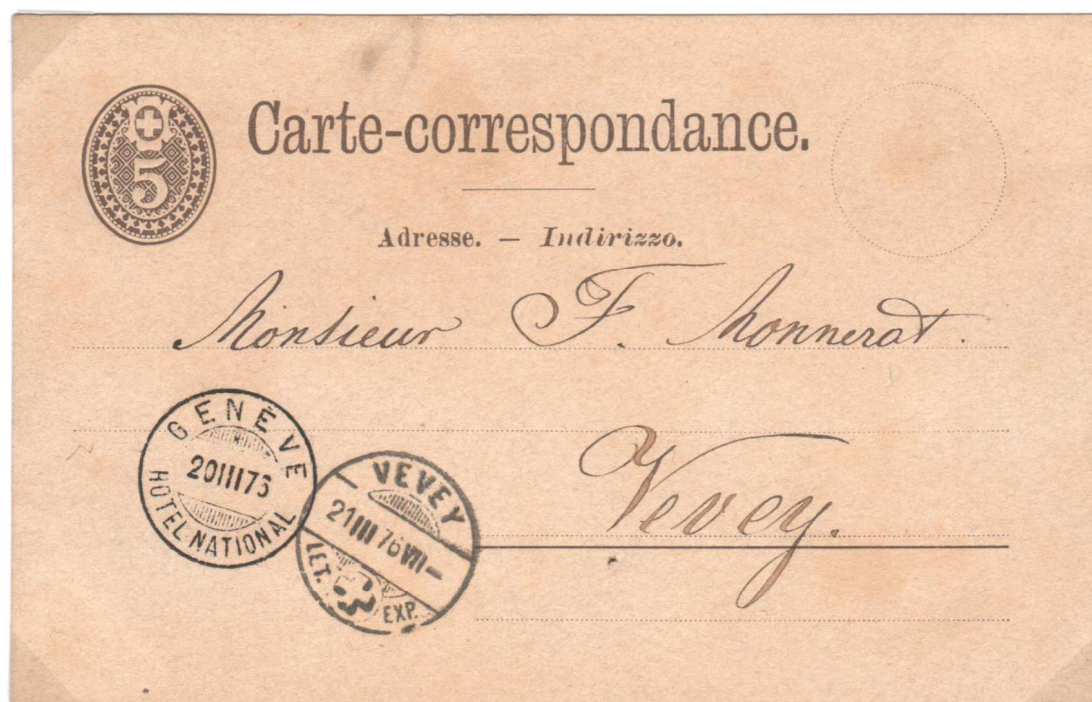 5
Carte-correspondance.
Adresse. — Indirizzo.
Monsieur F. Monnerat.
Vevey.
GENÈVE
20III76
HOTEL NATIONAL
VEVEY
21III76VII–
LET. EXP.